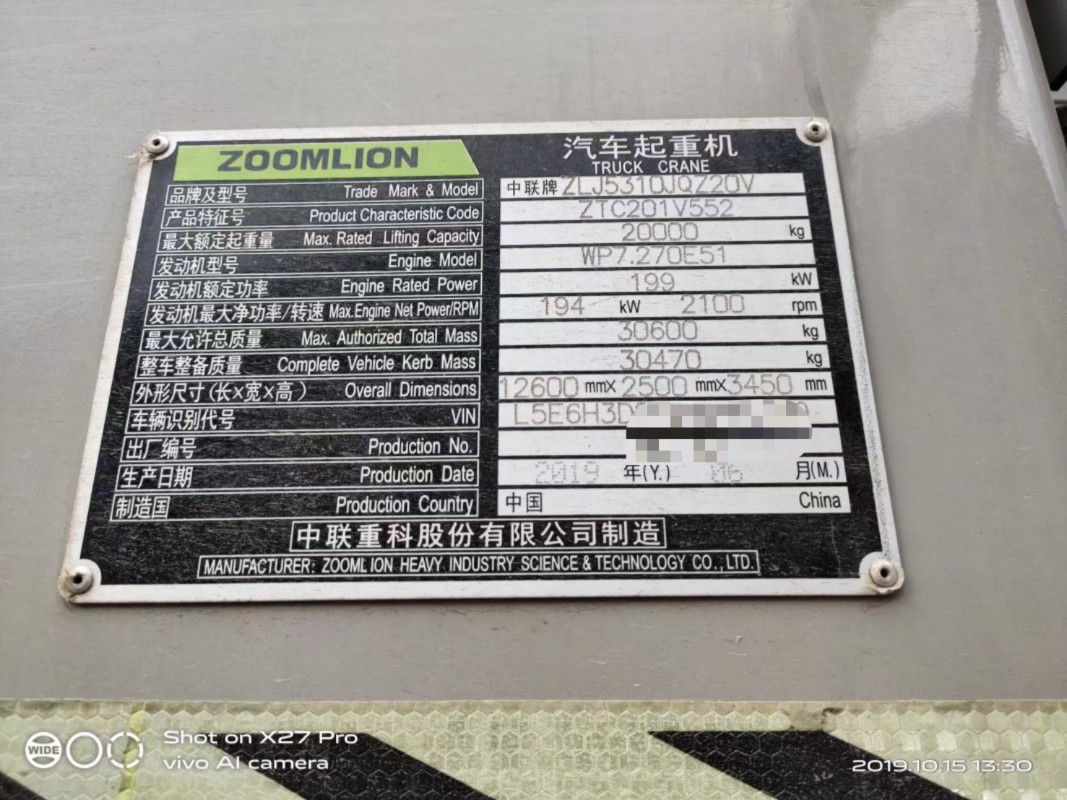 ZOOMLION
汽车起重机
TRUCK CRANE
品牌及型号 Trade Mark & Model 中联牌 ZLJ5310JQZ20V
产品特征号 Product Characteristic Code ZTC201V552
最大额定起重量 Max. Rated Lifting Capacity 20000 kg
发动机型号 Engine Model WP7.270E51
发动机额定功率 Engine Rated Power 199 kW
发动机最大净功率/转速 Max.Engine Net Power/RPM 194 kW 2100 rpm
最大允许总质量 Max. Authorized Total Mass 30600 kg
整车整备质量 Complete Vehicle Kerb Mass 30470 kg
外形尺寸(长X宽X高) Overall Dimensions 12600 mmX 2500 mmX 3450 mm
车辆识别代号 VIN L5E6H3D
出厂编号 Production No.
生产日期 Production Date 2019 年(Y.) 06 月(M.)
制造国 Production Country 中国 China
中联重科股份有限公司制造
MANUFACTURER: ZOOMLION HEAVY INDUSTRY SCIENCE & TECHNOLOGY CO., LTD.
WIDE
Shot on X27 Pro
vivo AI camera
2019.10.15 13:30